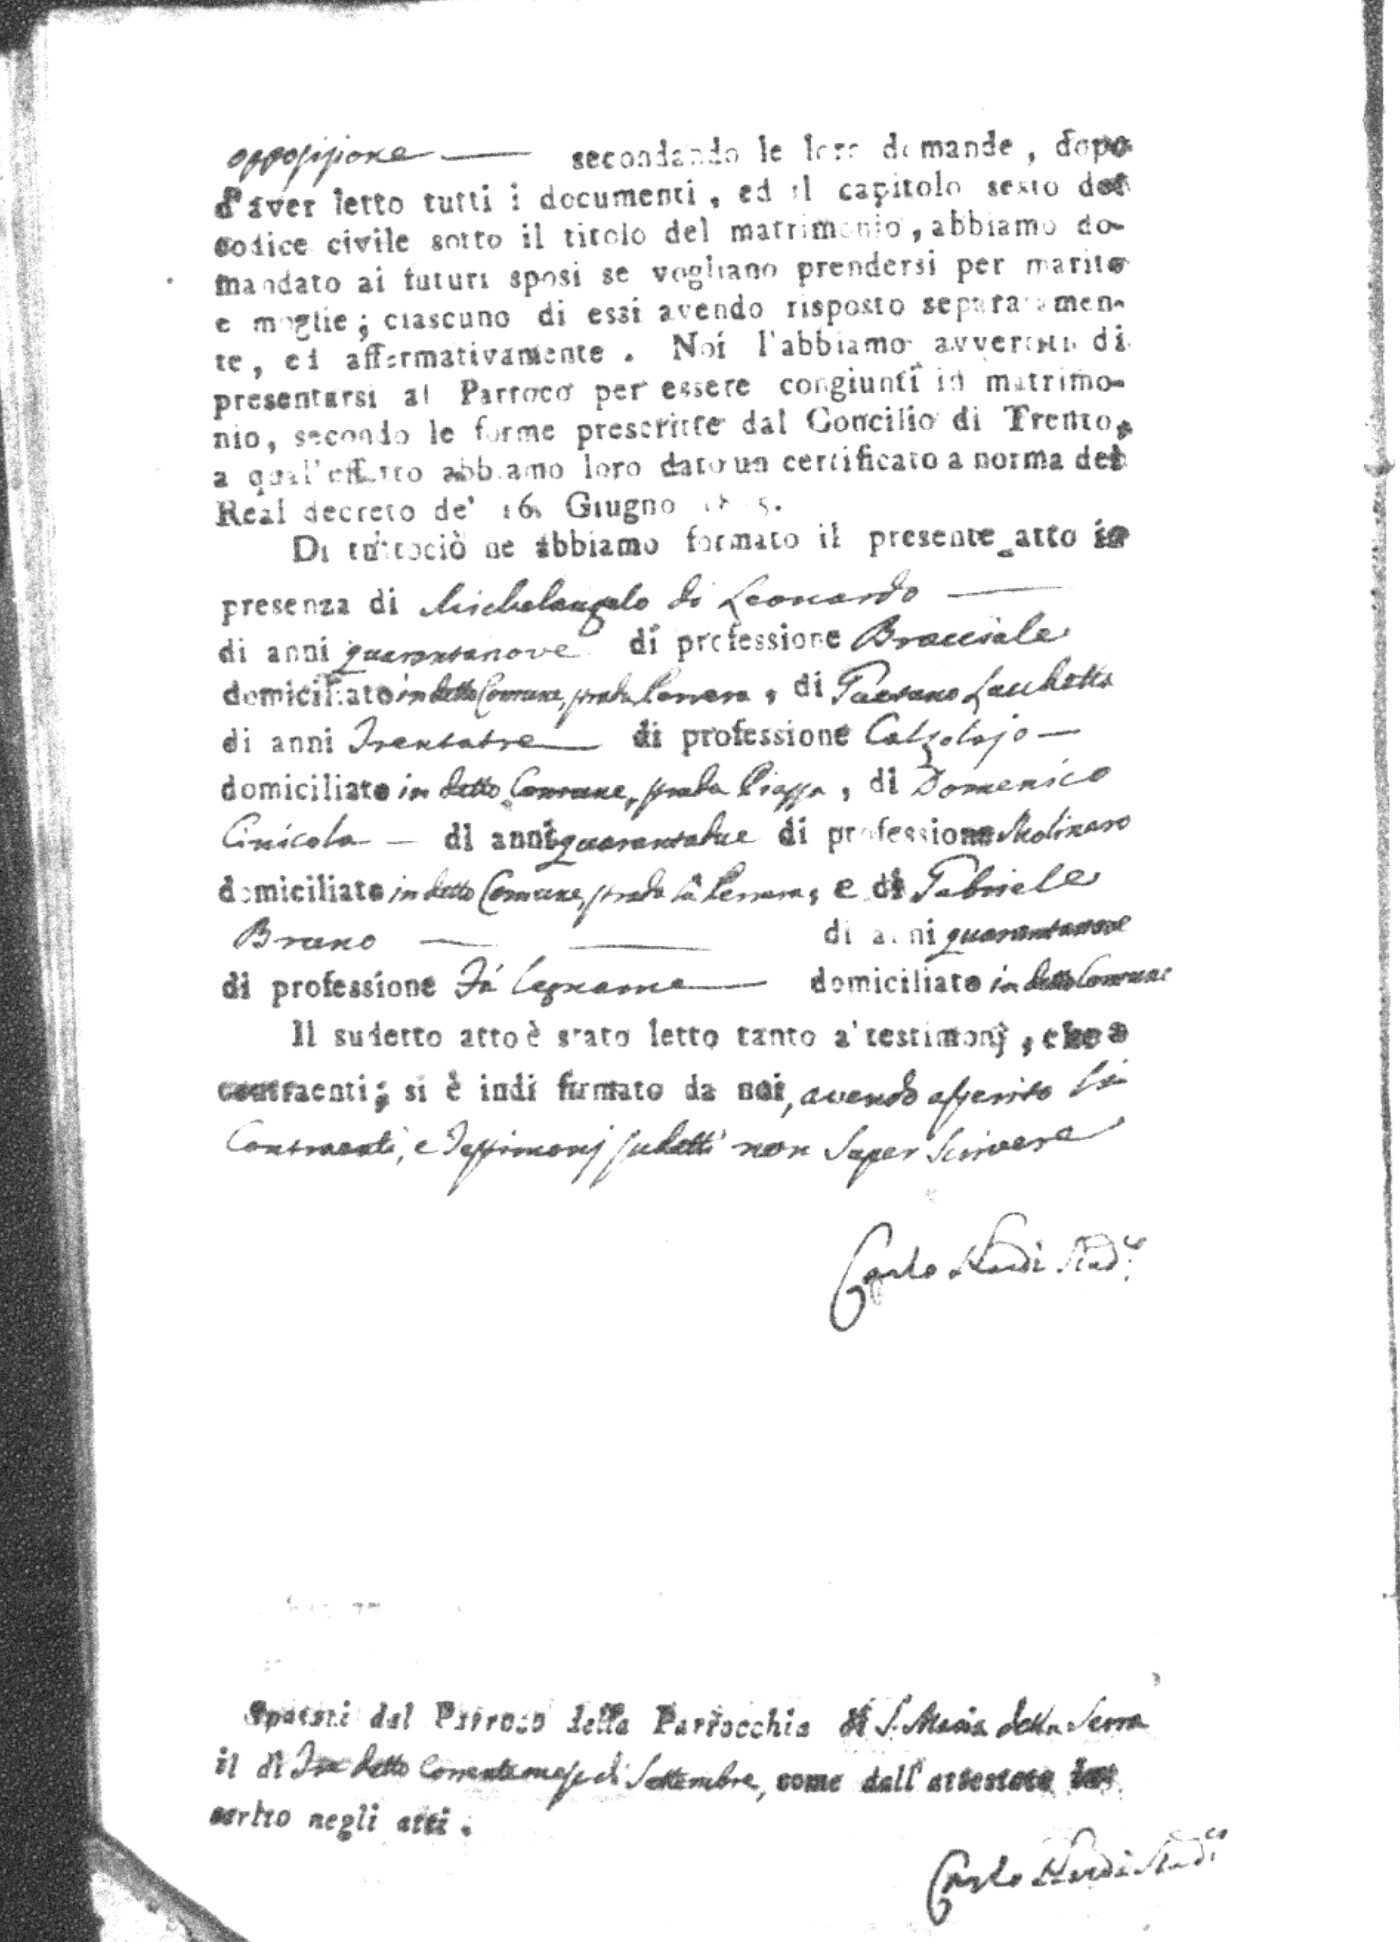 opposizione — secondando le loro demande, dopo
d'aver letto tutti i documenti, ed il capitolo sesto del
codice civile sotto il titolo del matrimonio, abbiamo do-
mandato ai futuri sposi se vogliano prendersi per marito
e moglie; ciascuno di essi avendo risposto separatamen-
te, ed affermativamente. Noi l'abbiamo avvertiti di
presentarsi al Parroco per essere congiunti in matrimo-
nio, secondo le forme prescritte dal Concilio di Trento,
a qual'effetto abbiamo loro dato un certificato a norma del
Real decreto de' 16 Giugno
Di tuttociò ne abbiamo formato il presente atto in
presenza di Michelangelo di Leonardo —
di anni quarantanove di professione Bracciale
domiciliato in detto Comune, strada , di Gaetano
di anni Trentatre — di professione Calzolajo —
domiciliato in detto Comune, strada Piazza, di Domenico
Cinicola — di anni quarantadue di professione Molinaro
domiciliato in detto Comune, strada , e di Gabriele
Bruno — — di anni quarantanove
di professione Fa' legname — domiciliato in detto Comune
Il sudetto atto è stato letto tanto a' testimonj, che a
contraenti; si è indi firmato da noi, avendo asserito li
Contraenti, e Testimonj sudetti non saper scrivere
Carlo
Sposati dal Parroco della Parrocchia di S. Maria della Serra
il dì Tre detto Corrente mese di Settembre, come dall'attestato in-
serito negli atti.
Carlo